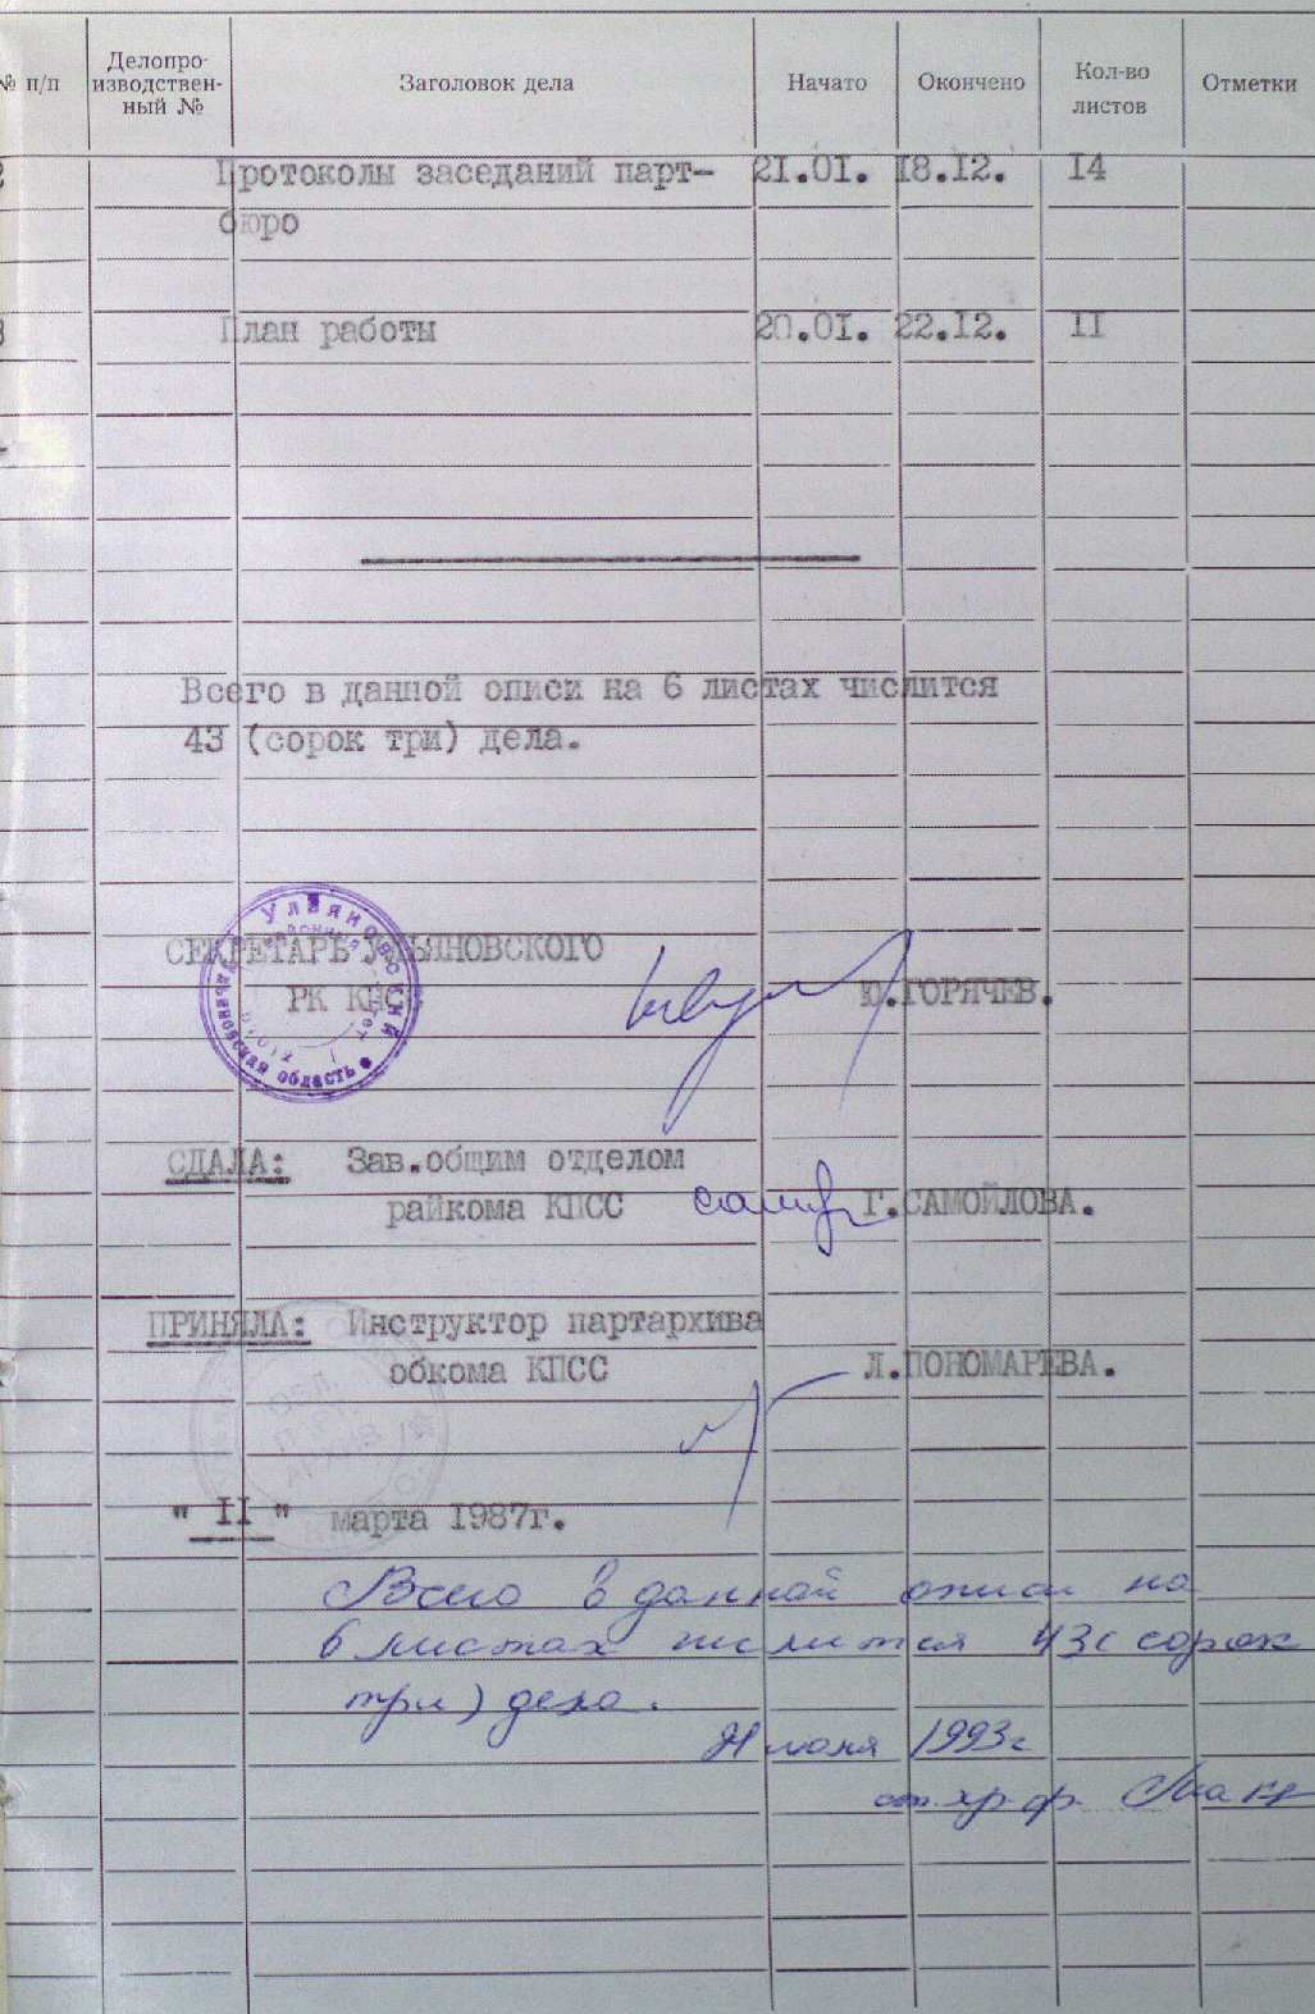 № п/п Делопро-изводствен-ный № Заголовок дела Начато Окончено Кол-во листов Отметки
Протоколы заседаний парт- 21.01. 18.12. 14
бюро
План работы 20.01. 22.12. 11
Всего в данной описи на 6 листах числится
43 (сорок три) дела.
СЕКРЕТАРЬ УЛЬЯНОВСКОГО
РК КПСС Ю.ГОРЯЧЕВ.
Ульяновский
Ульяновская область
СДАЛА: Зав.общим отделом
райкома КПСС Г.САМОЙЛОВА.
ПРИНЯЛА: Инструктор партархива
обкома КПСС Л.ПОНОМАРЕВА.
" II " марта 1987г.
Всего в данной описи на
6 листах числится 43 (сорок
три) дела.
1993г
ст. хр. ф.